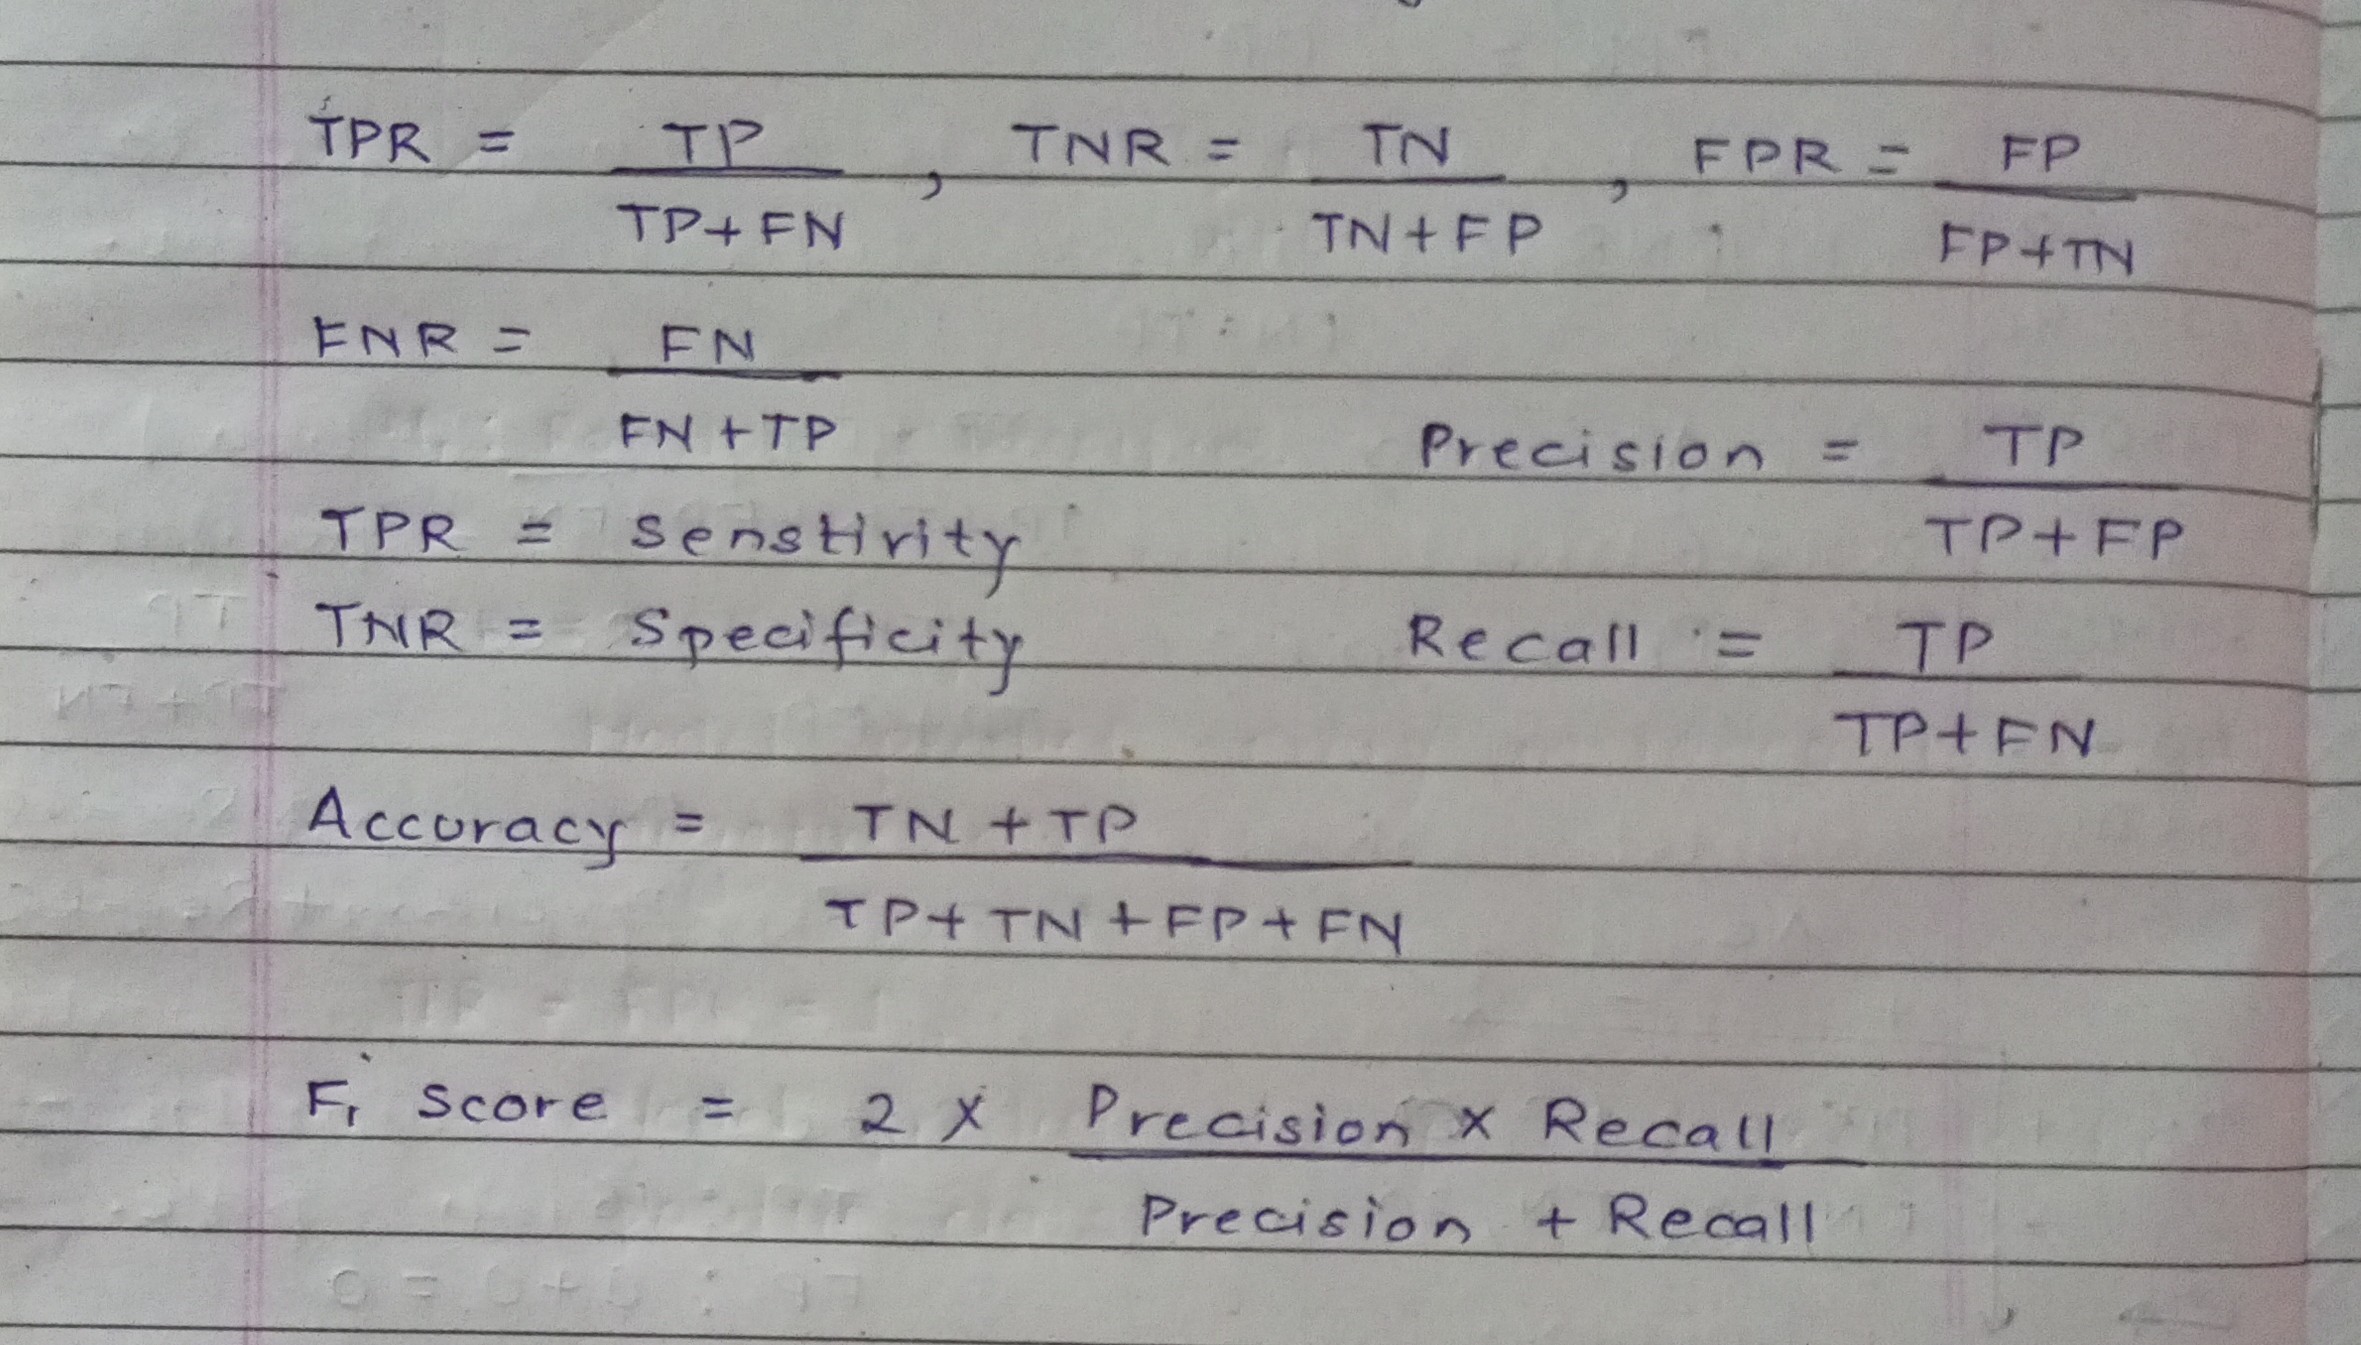 TPR = TP / TP+FN , TNR = TN / TN+FP , FPR = FP / FP+TN
FNR = FN / FN+TP
Precision = TP / TP+FP
TPR = Senstivity
TNR = Specificity
Recall = TP / TP+FN
Accuracy = TN + TP / TP+TN+FP+FN
F1 Score = 2 x Precision x Recall / Precision + Recall